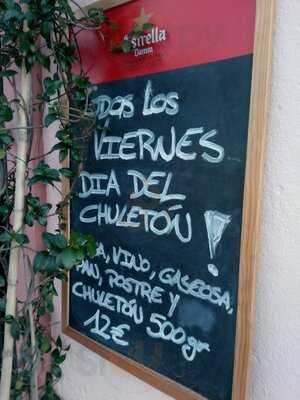 Estrella
Damm
TODOS LOS
VIERNES
DIA DEL
CHULETÓN !
VINO, GASEOSA,
PAN, POSTRE Y
CHULETÓN 500gr
12€